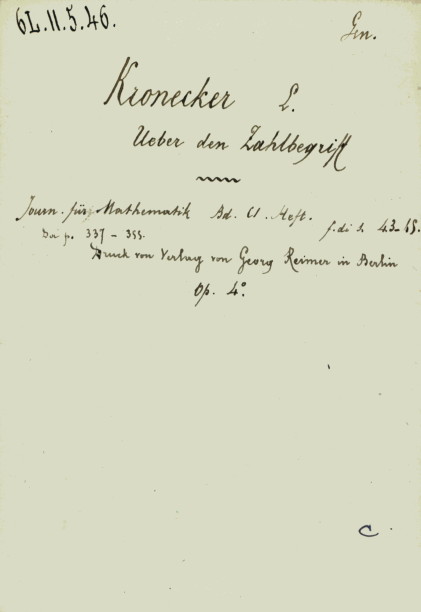 6L.11.5.46.
Gen.
Kronecker L.
Ueber den Zahlbegriff
Journ. für Mathematik Bd. CI. Heft.
Da p. 337 - 355.
f. di s. 43-65.
Druck von Verlag von Georg Reimer in Berlin
Op. 4°.
C